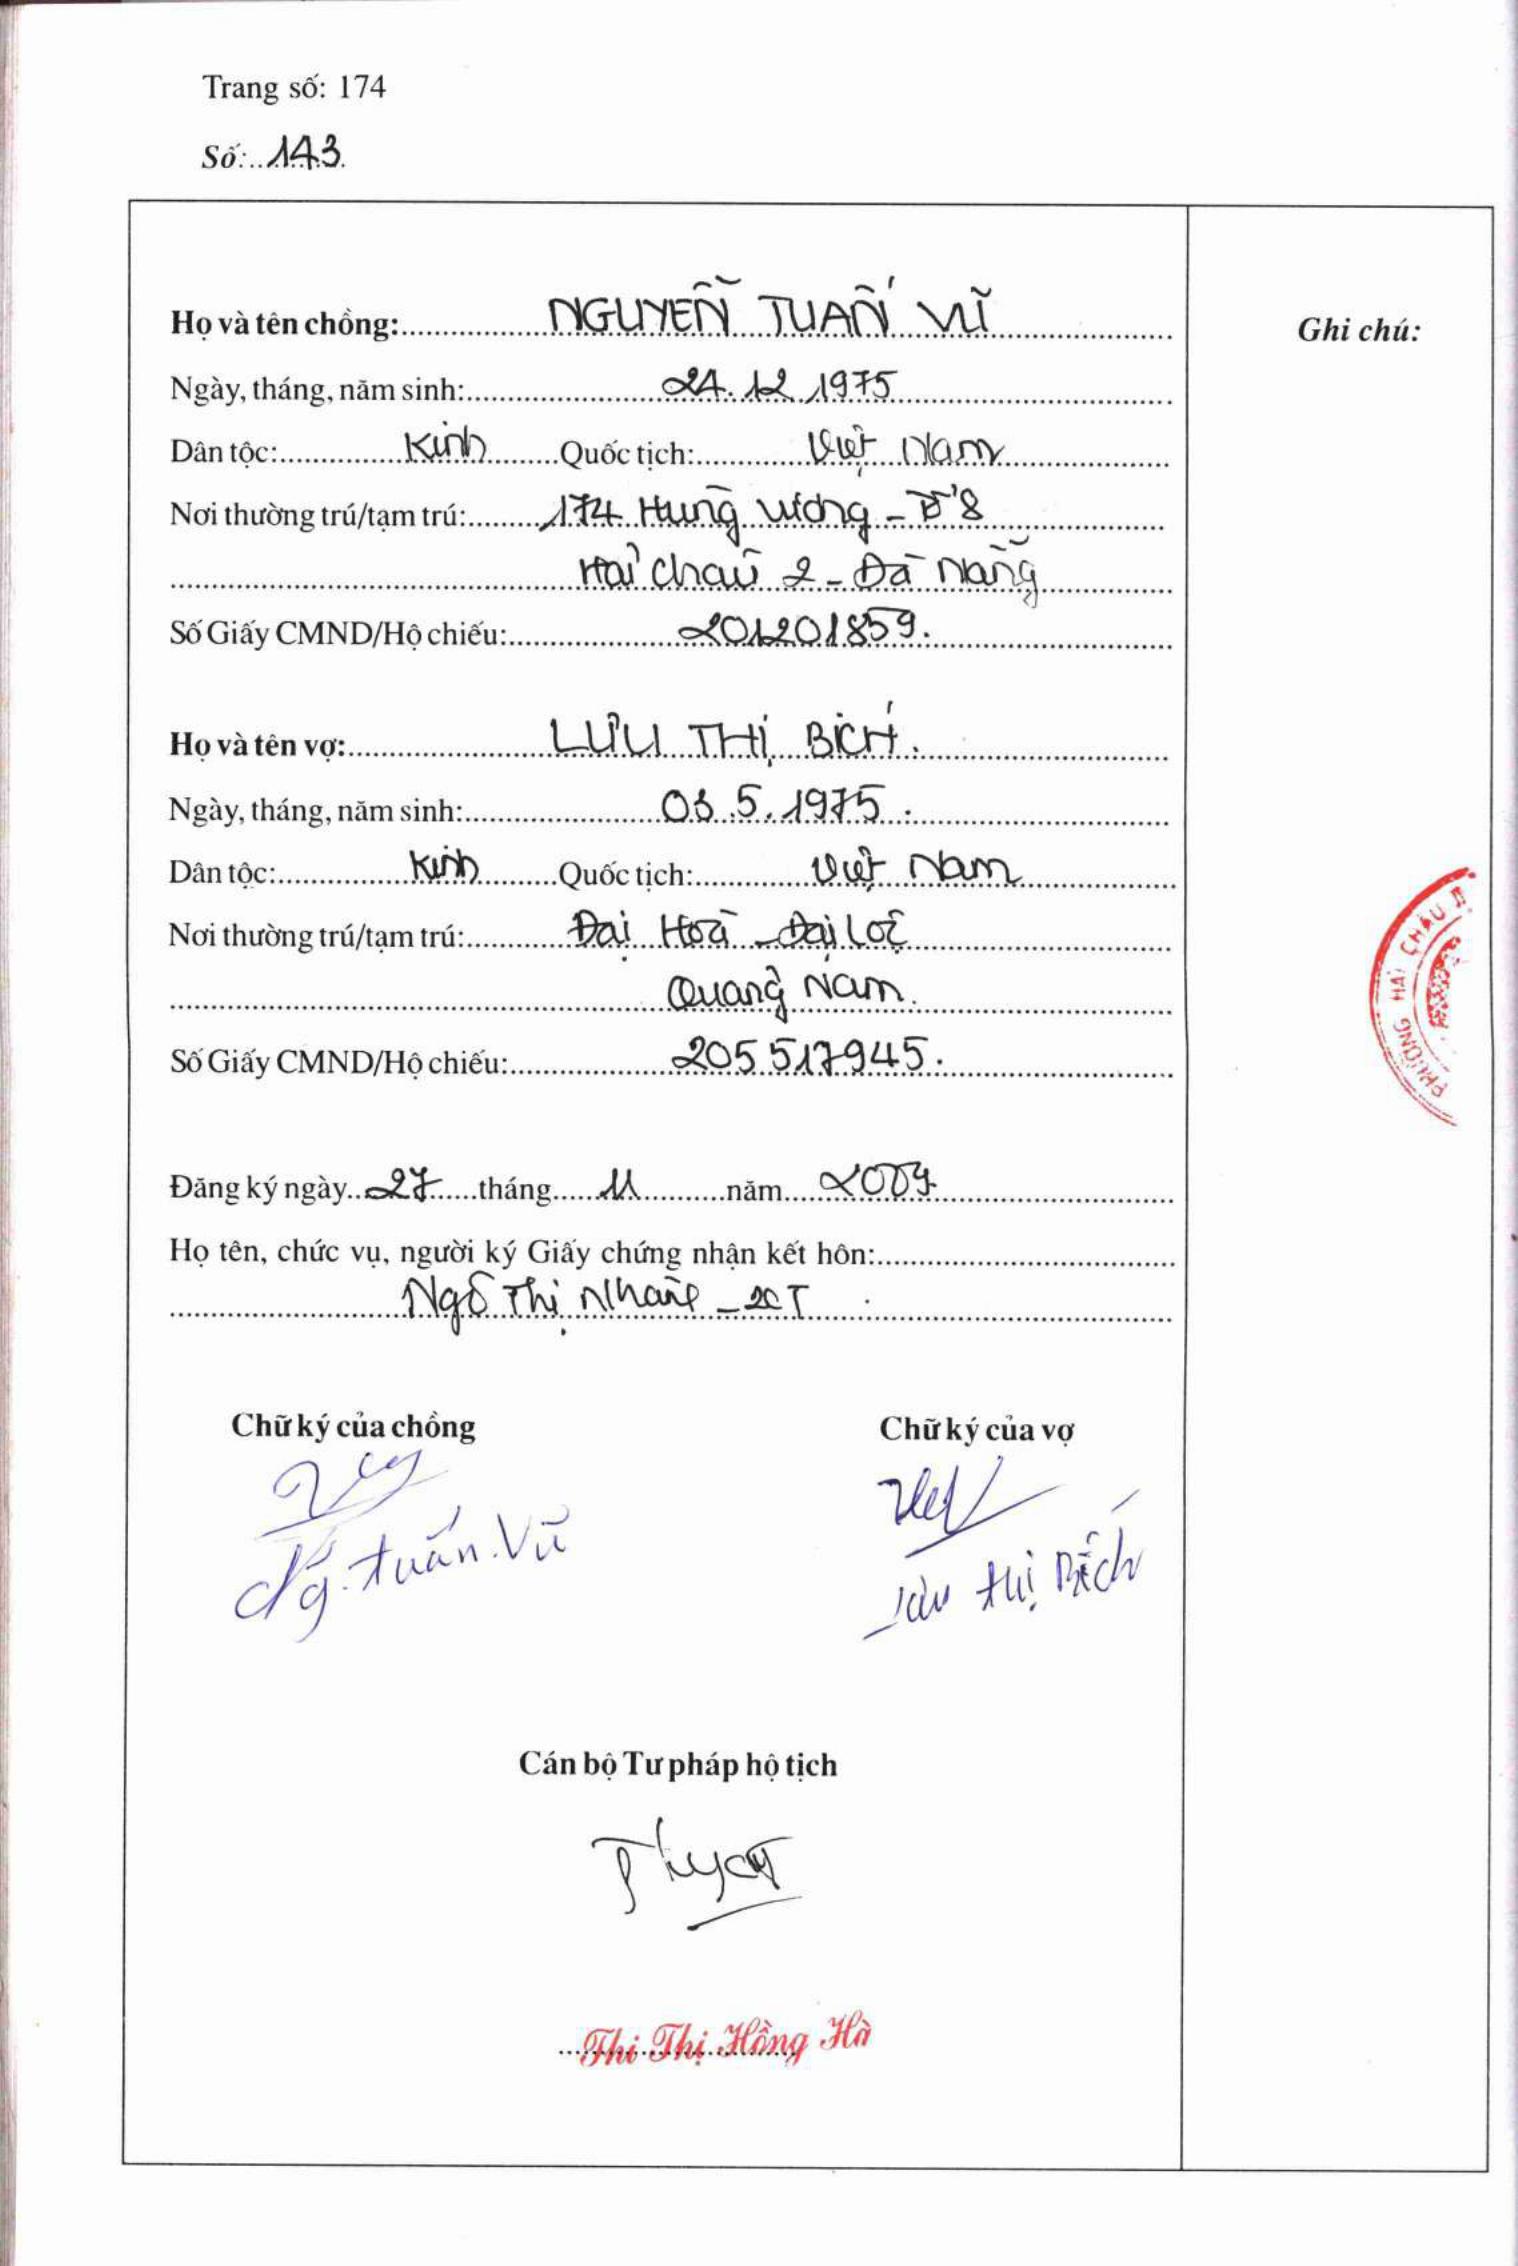 Trang số: 174
Số: 143
Họ và tên chồng: NGUYỄN TUẤN VŨ
Ghi chú:
Ngày, tháng, năm sinh: 24.12.1975
Dân tộc: Kinh Quốc tịch: Việt Nam
Nơi thường trú/tạm trú: 174 Hùng Vương -
Hải Châu 2 - Đà Nẵng
Số Giấy CMND/Hộ chiếu: 201201859.
Họ và tên vợ: LƯU THỊ BÍCH.
Ngày, tháng, năm sinh: 03.5.1975.
Dân tộc: Kinh Quốc tịch: Việt Nam
Nơi thường trú/tạm trú: Đại Hoà - Đại Lộc
Quảng Nam.
Số Giấy CMND/Hộ chiếu: 205517945.
PHƯỜNG HẢI CHÂU
Đăng ký ngày 27 tháng 11 năm 2009
Họ tên, chức vụ, người ký Giấy chứng nhận kết hôn:
Ngô Thị
Chữ ký của chồng
Chữ ký của vợ
Ng. Tuấn. Vũ
Lưu Thị Bích
Cán bộ Tư pháp hộ tịch
Thi Thị Hồng Hà